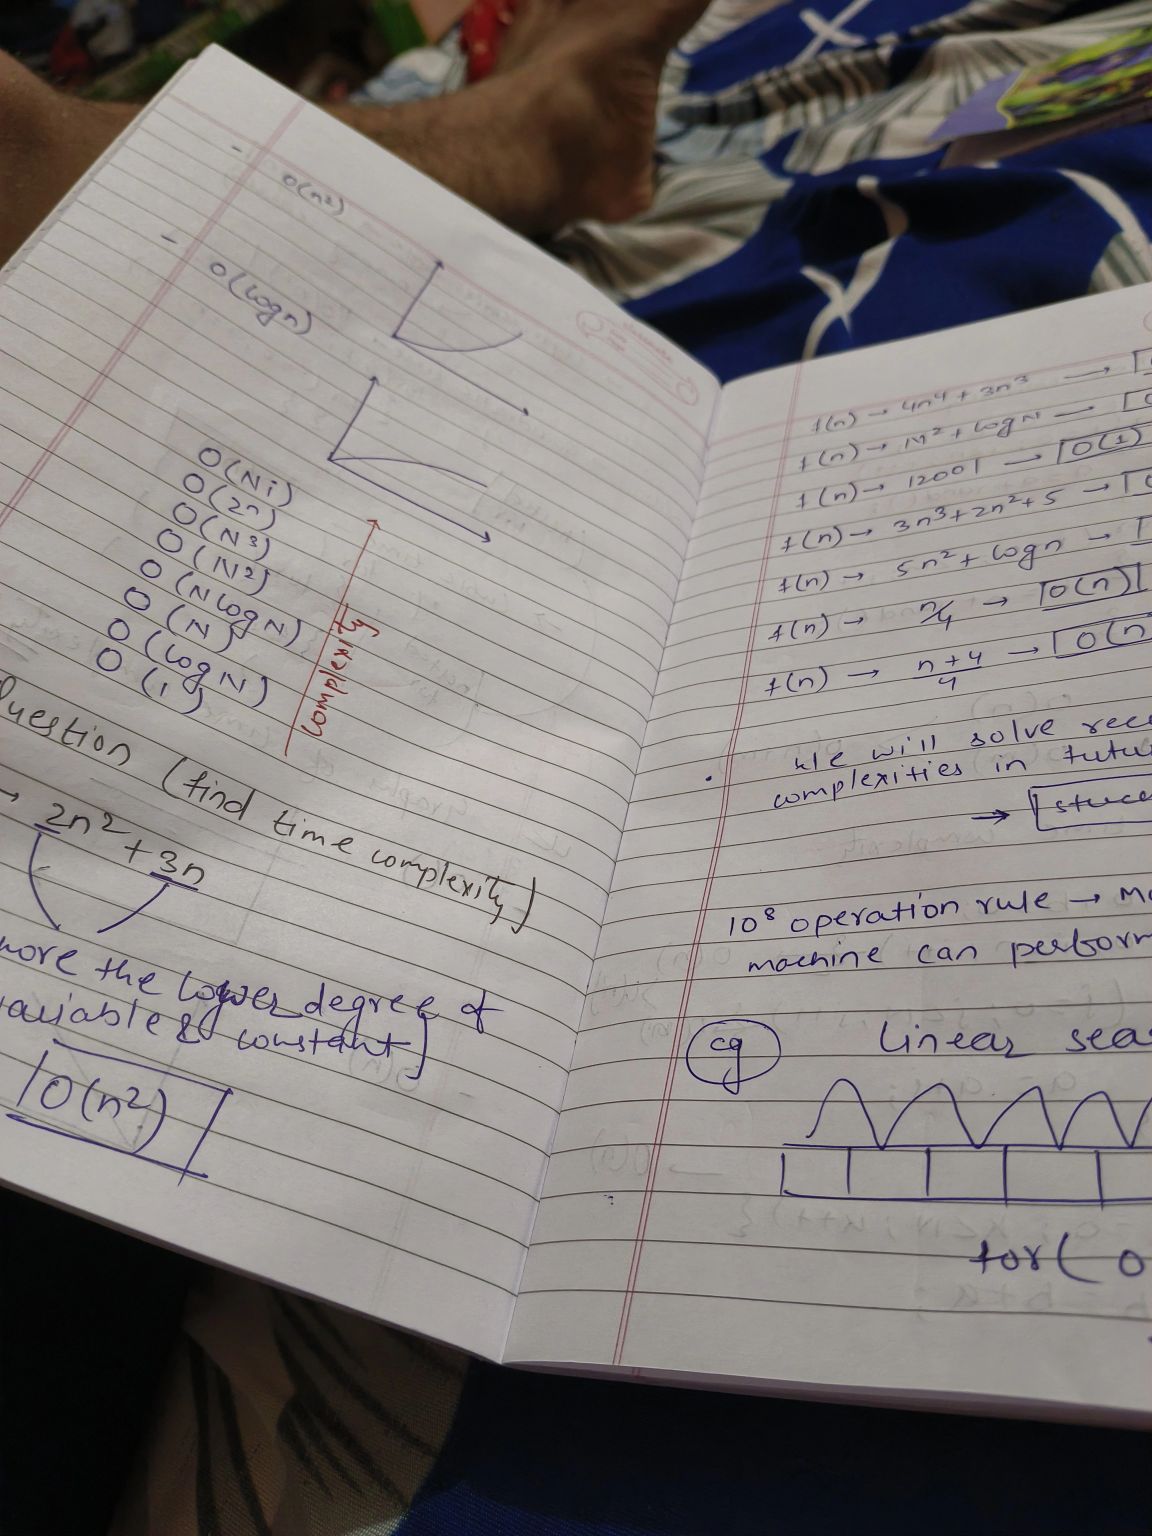 O(n²)
O(logn)
O(N!)
O(2n)
O(N3)
O(N2)
O(NlogN)
O(N)
O(logN)
O(1)
complexity
Question (find time complexity)
→ 2n² + 3n
the lower degree of
variable & constant]
O(n²)
f(n) → 4n⁴ + 3n³ →
f(n) → N² + logN →
f(n) → 12001 → O(1)
f(n) → 3n³ + 2n² + 5 →
f(n) → 5n² + logn →
f(n) → n/4 → O(n)
f(n) → n+4/4 → O(n
• We will solve
complexities in
→
10⁸ operation rule →
machine can perform
eg Linear sea
for( 0